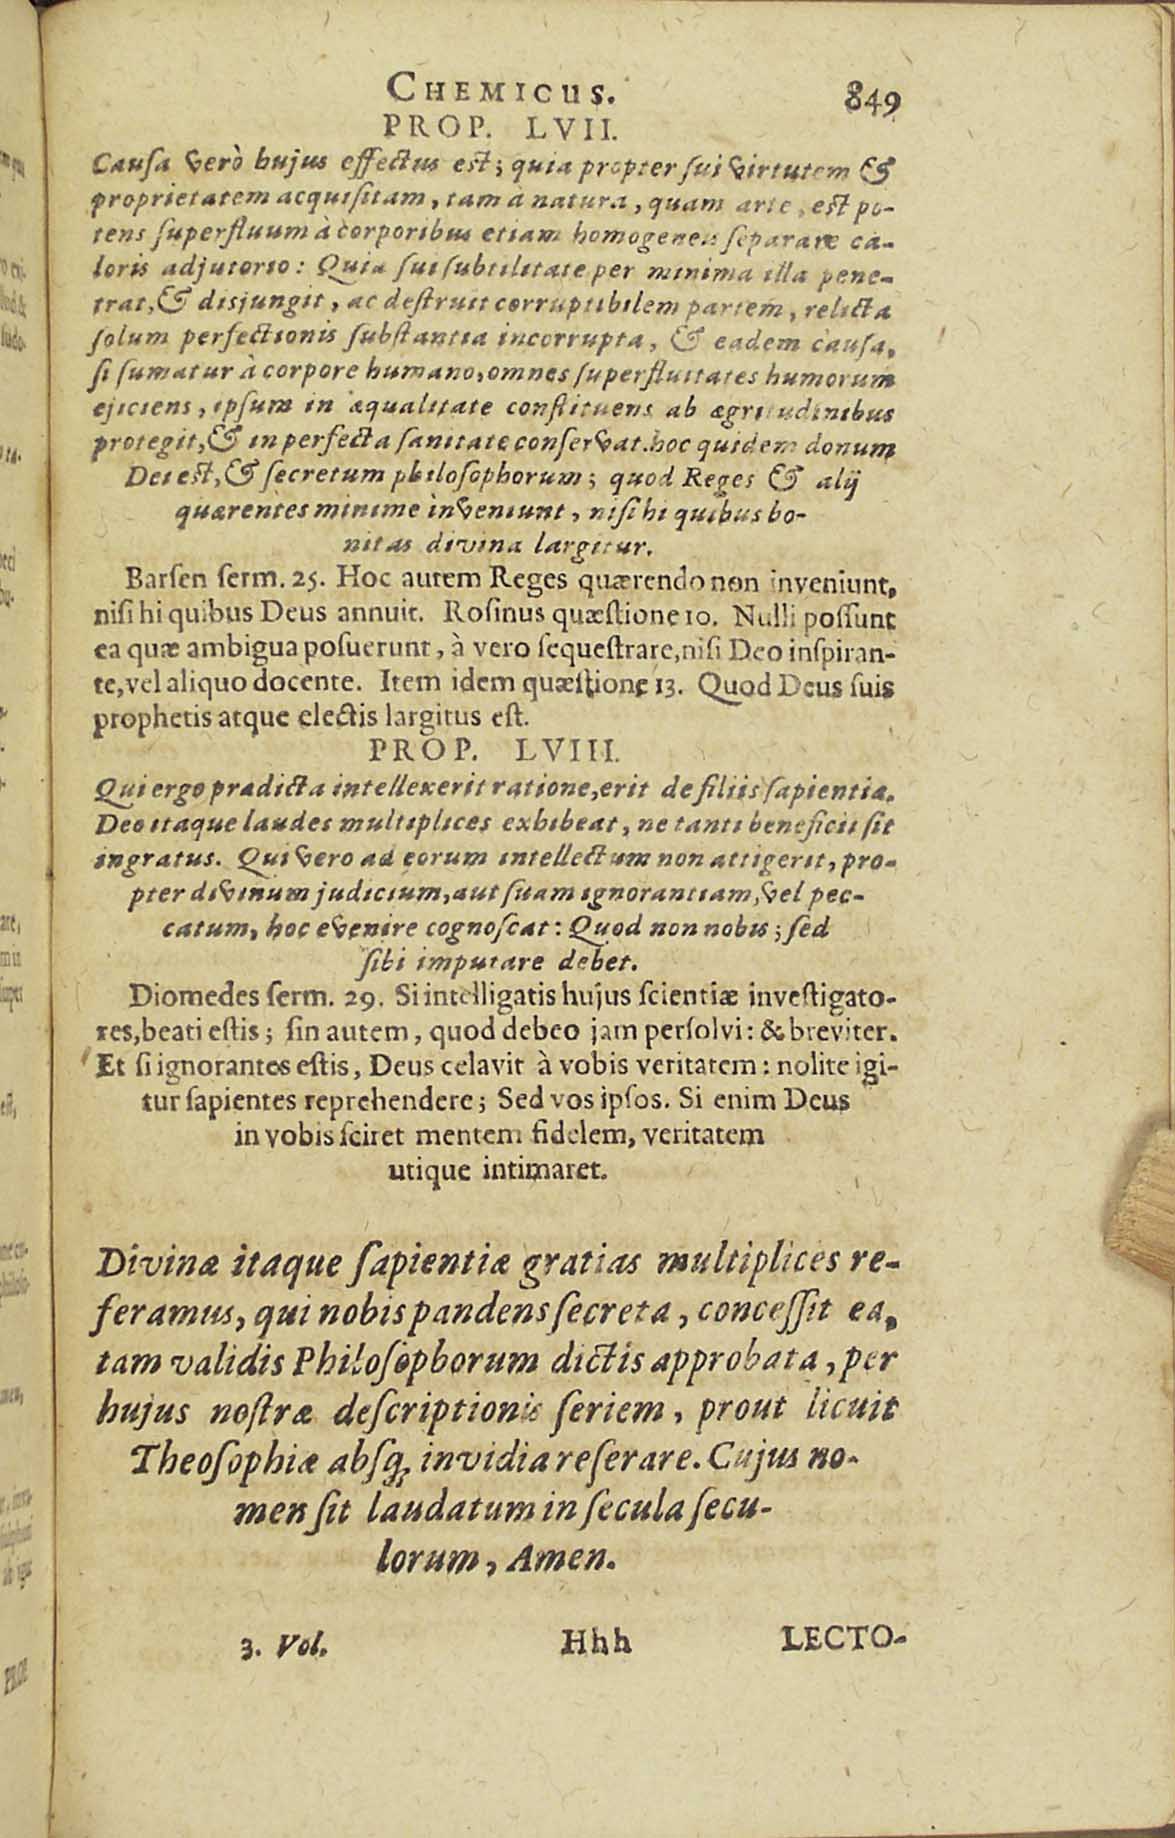 CHEMICUS. 849
PROP. LVII.
Causa verò hujus effectus est; quia propter sui virtutem &
proprietatem acquisitam, tam à natura, quam arte, est po-
tens superfluum à corporibus etiam homogeneis separare ca-
loris adjutorio: Quia sui subtilitate per minima illa pene-
trat, & disjungit, ac destruit corruptibilem partem, relicta
solum perfectionis substantia incorrupta, & eadem causa,
si sumatur à corpore humano, omnes superfluitates humorum
ejiciens, ipsum in æqualitate constituens ab ægritudinibus
protegit, & in perfecta sanitate conservat. hoc quidem donum
Dei est, & secretum philosophorum; quod Reges & alij
quærentes minimè inveniunt, nisi hi quibus bo-
nitas divina largitur.
Barsen serm. 25. Hoc autem Reges quærendo non inveniunt,
nisi hi quibus Deus annuit. Rosinus quæstione 10. Nulli possunt
ea quæ ambigua posuerunt, à vero sequestrare, nisi Deo inspiran-
te, vel aliquo docente. Item idem quæstione 13. Quod Deus suis
prophetis atque electis largitus est.
PROP. LVIII.
Qui ergo prædicta intellexerit ratione, erit de filiis sapientiæ.
Deo itaque laudes multiplices exhibeat, ne tanti beneficii sit
ingratus. Qui vero ad eorum intellectum non attigerit, pro-
pter divinum judicium, aut suam ignorantiam, vel pec-
catum, hoc evenire cognoscat: Quod non nobis; sed
sibi imputare debet.
Diomedes serm. 29. Si intelligatis hujus scientiæ investigato-
res, beati estis; sin autem, quod debeo jam persolvi: & breviter.
Et si ignorantes estis, Deus celavit à vobis veritatem: nolite igi-
tur sapientes reprehendere; Sed vos ipsos. Si enim Deus
in vobis sciret mentem fidelem, veritatem
utique intimaret.
Divinæ itaque sapientiæ gratias multiplices re-
feramus, qui nobis pandens secreta, concessit ea,
tam validis Philosophorum dictis approbata, per
hujus nostræ descriptionis seriem, prout licuit
Theosophiæ absq; invidia reserare. Cujus no-
men sit laudatum in secula secu-
lorum, Amen.
3. Vol. Hhh LECTO-